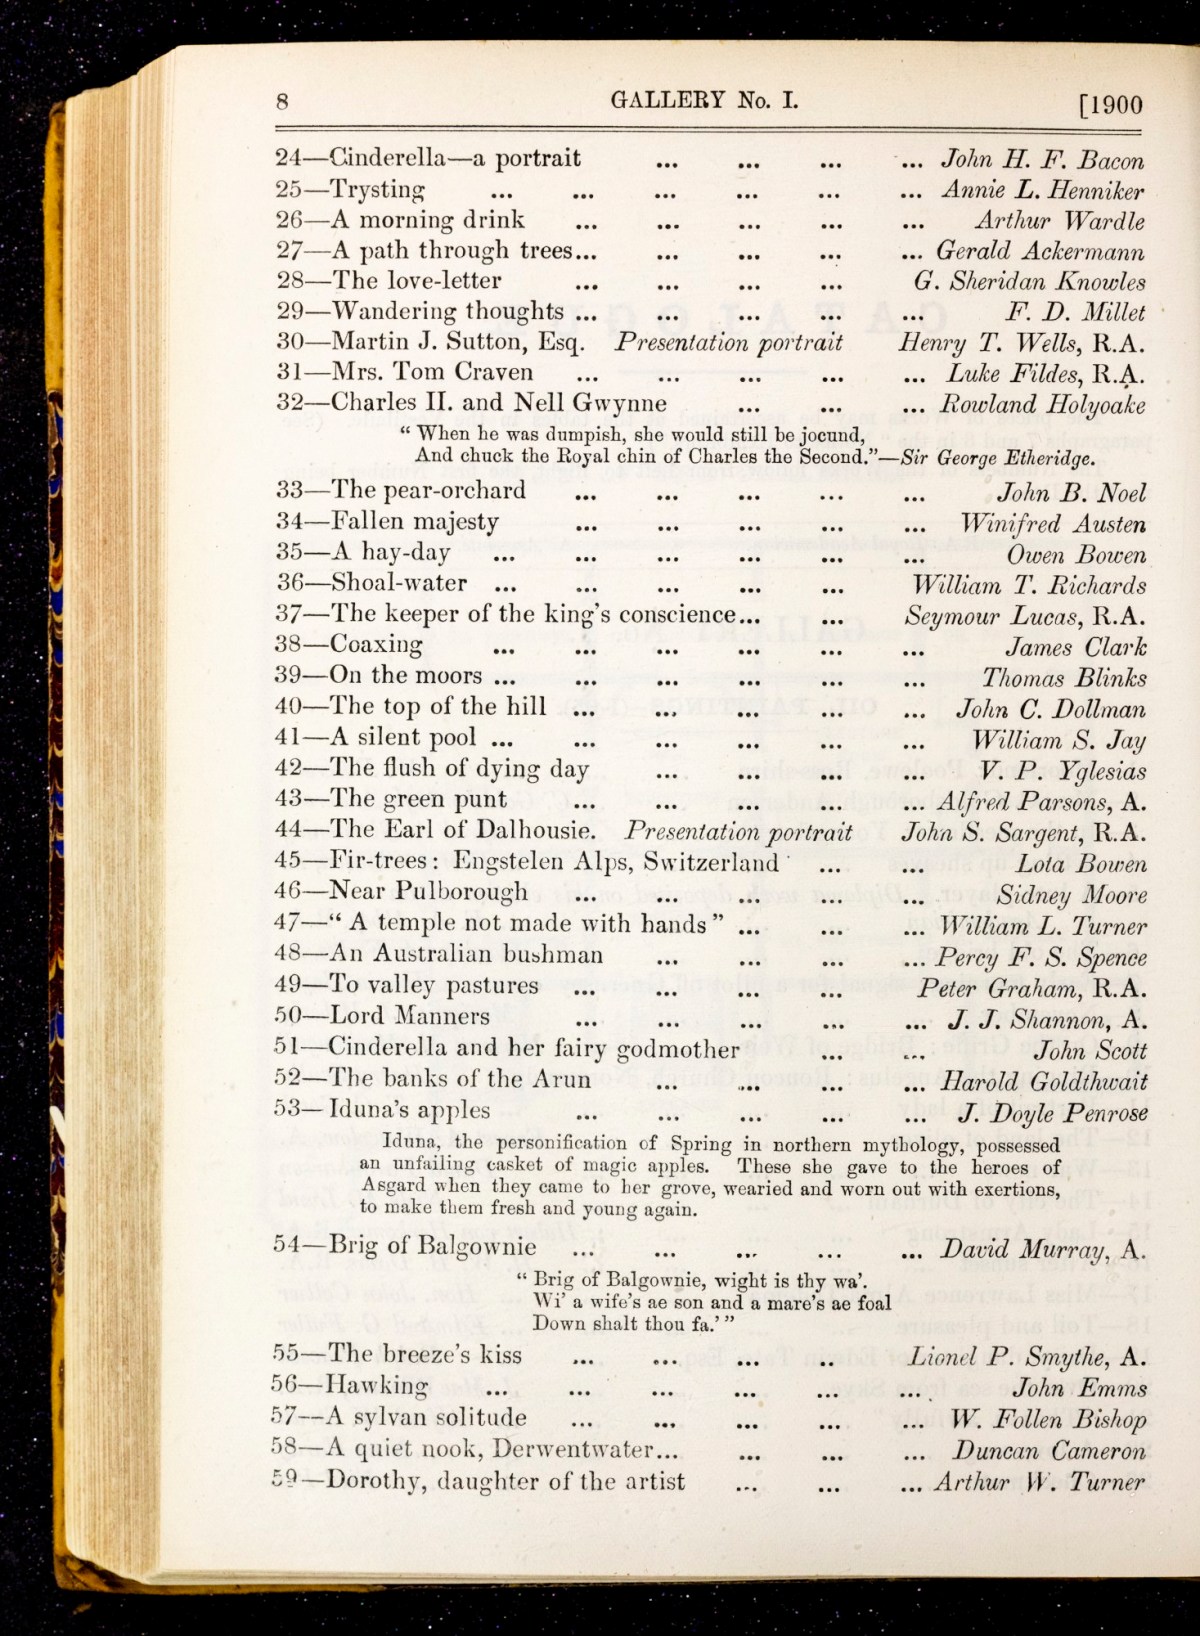 8 GALLERY No. I. [1900
24—Cinderella—a portrait ... ... ... ... John H. F. Bacon
25—Trysting ... ... ... ... ... ... Annie L. Henniker
26—A morning drink ... ... ... ... ... Arthur Wardle
27—A path through trees... ... ... ... ... Gerald Ackermann
28—The love-letter ... ... ... ... G. Sheridan Knowles
29—Wandering thoughts ... ... ... ... ... F. D. Millet
30—Martin J. Sutton, Esq. Presentation portrait Henry T. Wells, R.A.
31—Mrs. Tom Craven ... ... ... ... ... Luke Fildes, R.A.
32—Charles II. and Nell Gwynne ... ... ... Rowland Holyoake
“ When he was dumpish, she would still be jocund,
And chuck the Royal chin of Charles the Second.”—Sir George Etheridge.
33—The pear-orchard ... ... ... ... ... John B. Noel
34—Fallen majesty ... ... ... ... ... Winifred Austen
35—A hay-day ... ... ... ... ... ... Owen Bowen
36—Shoal-water ... ... ... ... ... William T. Richards
37—The keeper of the king's conscience... ... Seymour Lucas, R.A.
38—Coaxing ... ... ... ... ... ... James Clark
39—On the moors ... ... ... ... ... ... Thomas Blinks
40—The top of the hill ... ... ... ... ... John C. Dollman
41—A silent pool ... ... ... ... ... ... William S. Jay
42—The flush of dying day ... ... ... ... V. P. Yglesias
43—The green punt ... ... ... ... ... Alfred Parsons, A.
44—The Earl of Dalhousie. Presentation portrait John S. Sargent, R.A.
45—Fir-trees : Engstelen Alps, Switzerland ... ... Lota Bowen
46—Near Pulborough ... ... ... ... ... Sidney Moore
47—“ A temple not made with hands ” ... ... ... William L. Turner
48—An Australian bushman ... ... ... ... Percy F. S. Spence
49—To valley pastures ... ... ... ... Peter Graham, R.A.
50—Lord Manners ... ... ... ... ... J. J. Shannon, A.
51—Cinderella and her fairy godmother ... ... John Scott
52—The banks of the Arun ... ... ... ... Harold Goldthwait
53—Iduna's apples ... ... ... ... ... J. Doyle Penrose
Iduna, the personification of Spring in northern mythology, possessed
an unfailing casket of magic apples. These she gave to the heroes of
Asgard when they came to her grove, wearied and worn out with exertions,
to make them fresh and young again.
54—Brig of Balgownie ... ... ... ... ... David Murray, A.
“ Brig of Balgownie, wight is thy wa'.
Wi' a wife's ae son and a mare's ae foal
Down shalt thou fa.' ”
55—The breeze's kiss ... ... ... .. Lionel P. Smythe, A.
56—Hawking ... ... ... ... ... ... John Emms
57—A sylvan solitude ... ... ... ... ... W. Follen Bishop
58—A quiet nook, Derwentwater... ... ... ... Duncan Cameron
59—Dorothy, daughter of the artist ... ... ... Arthur W. Turner